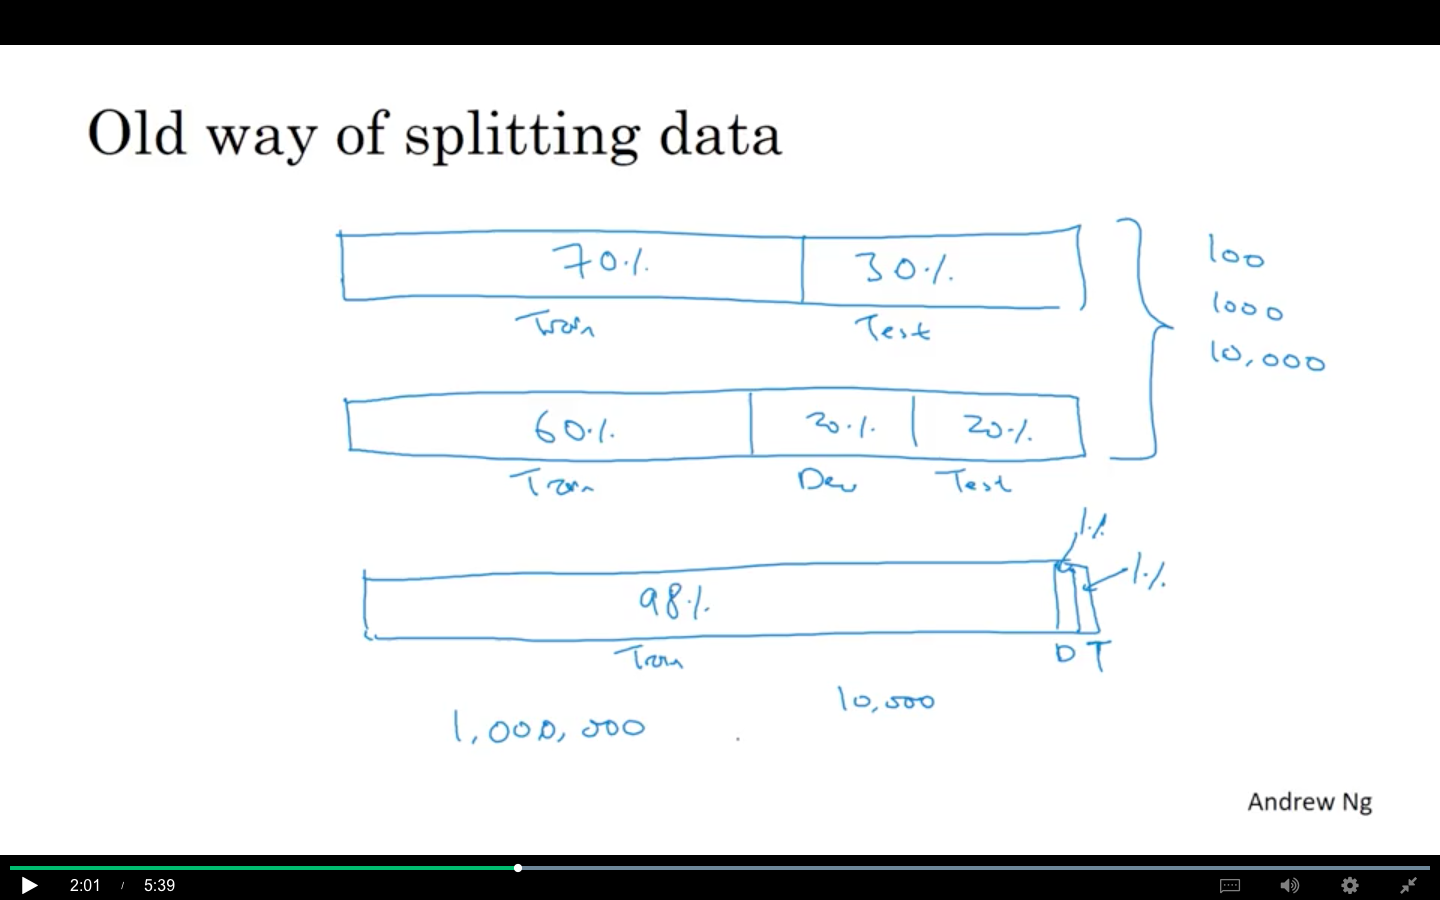 Old way of splitting data
70% 30%
100
Train Test
1000
10,000
60% 20% 20%
Train Dev Test
1%
1%
98%
Train D T
10,000
1,000,000
Andrew Ng
2:01 / 5:39